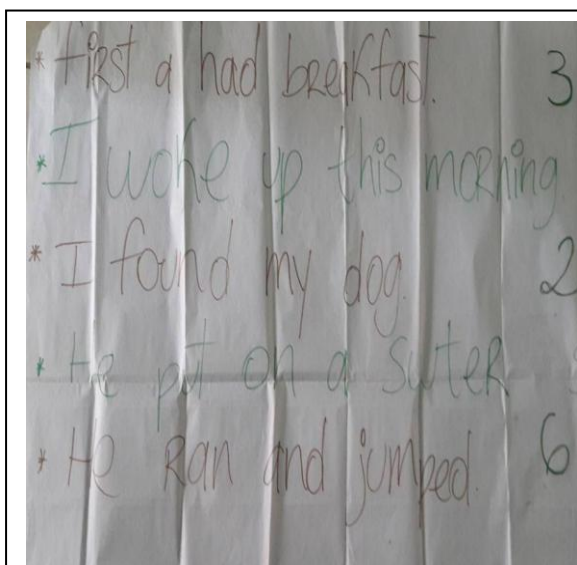 * First a had breakfast. 3
* I woke up this morning
* I found my dog. 2
* He put on a swter
* He Ran and jumped. 6